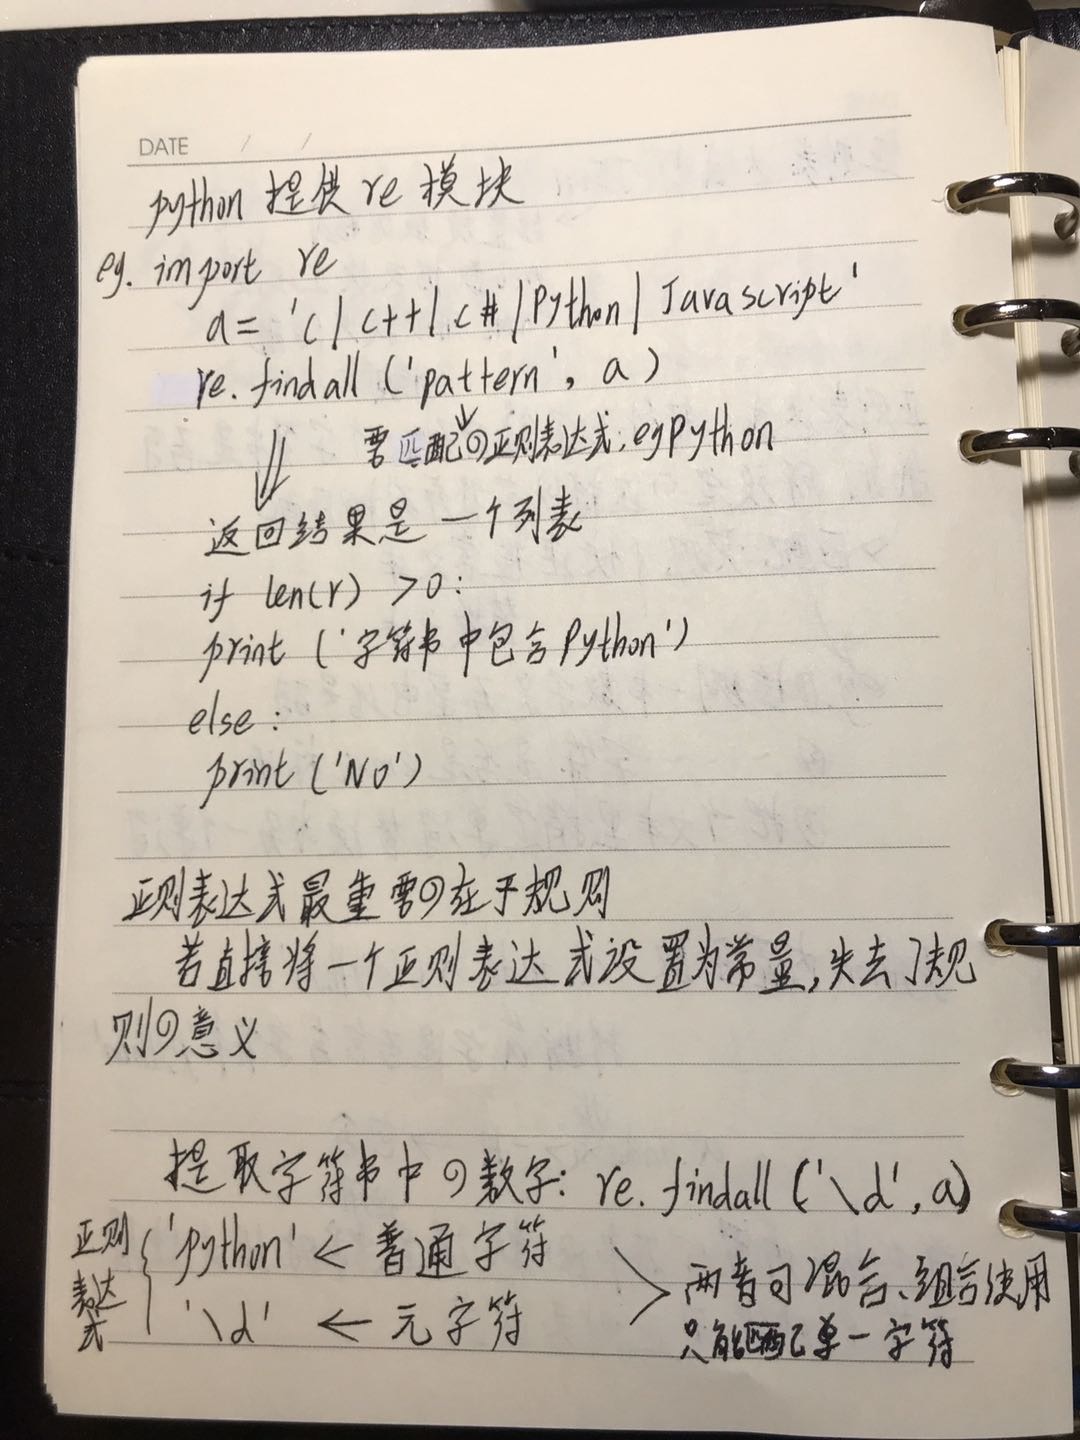 DATE / /
python 提供 re 模块
eg. import re
a = 'c|c++|c#|Python|Javascript'
re.findall ('pattern', a)
需匹配の正则表达式, eg Python
返回结果是一个列表
if len(r) >0:
print ('字符串中包含Python')
else:
print ('No')
正则表达式最重要の在于规则
若直接将一个正则表达式设置为常量,失去了规
则の意义
提取字符串中の数字: re.findall ('\d', a)
正则表达式 { 'python' ← 普通字符
'\d' ← 元字符
> 两者可混合、组合使用
只能匹配单一字符